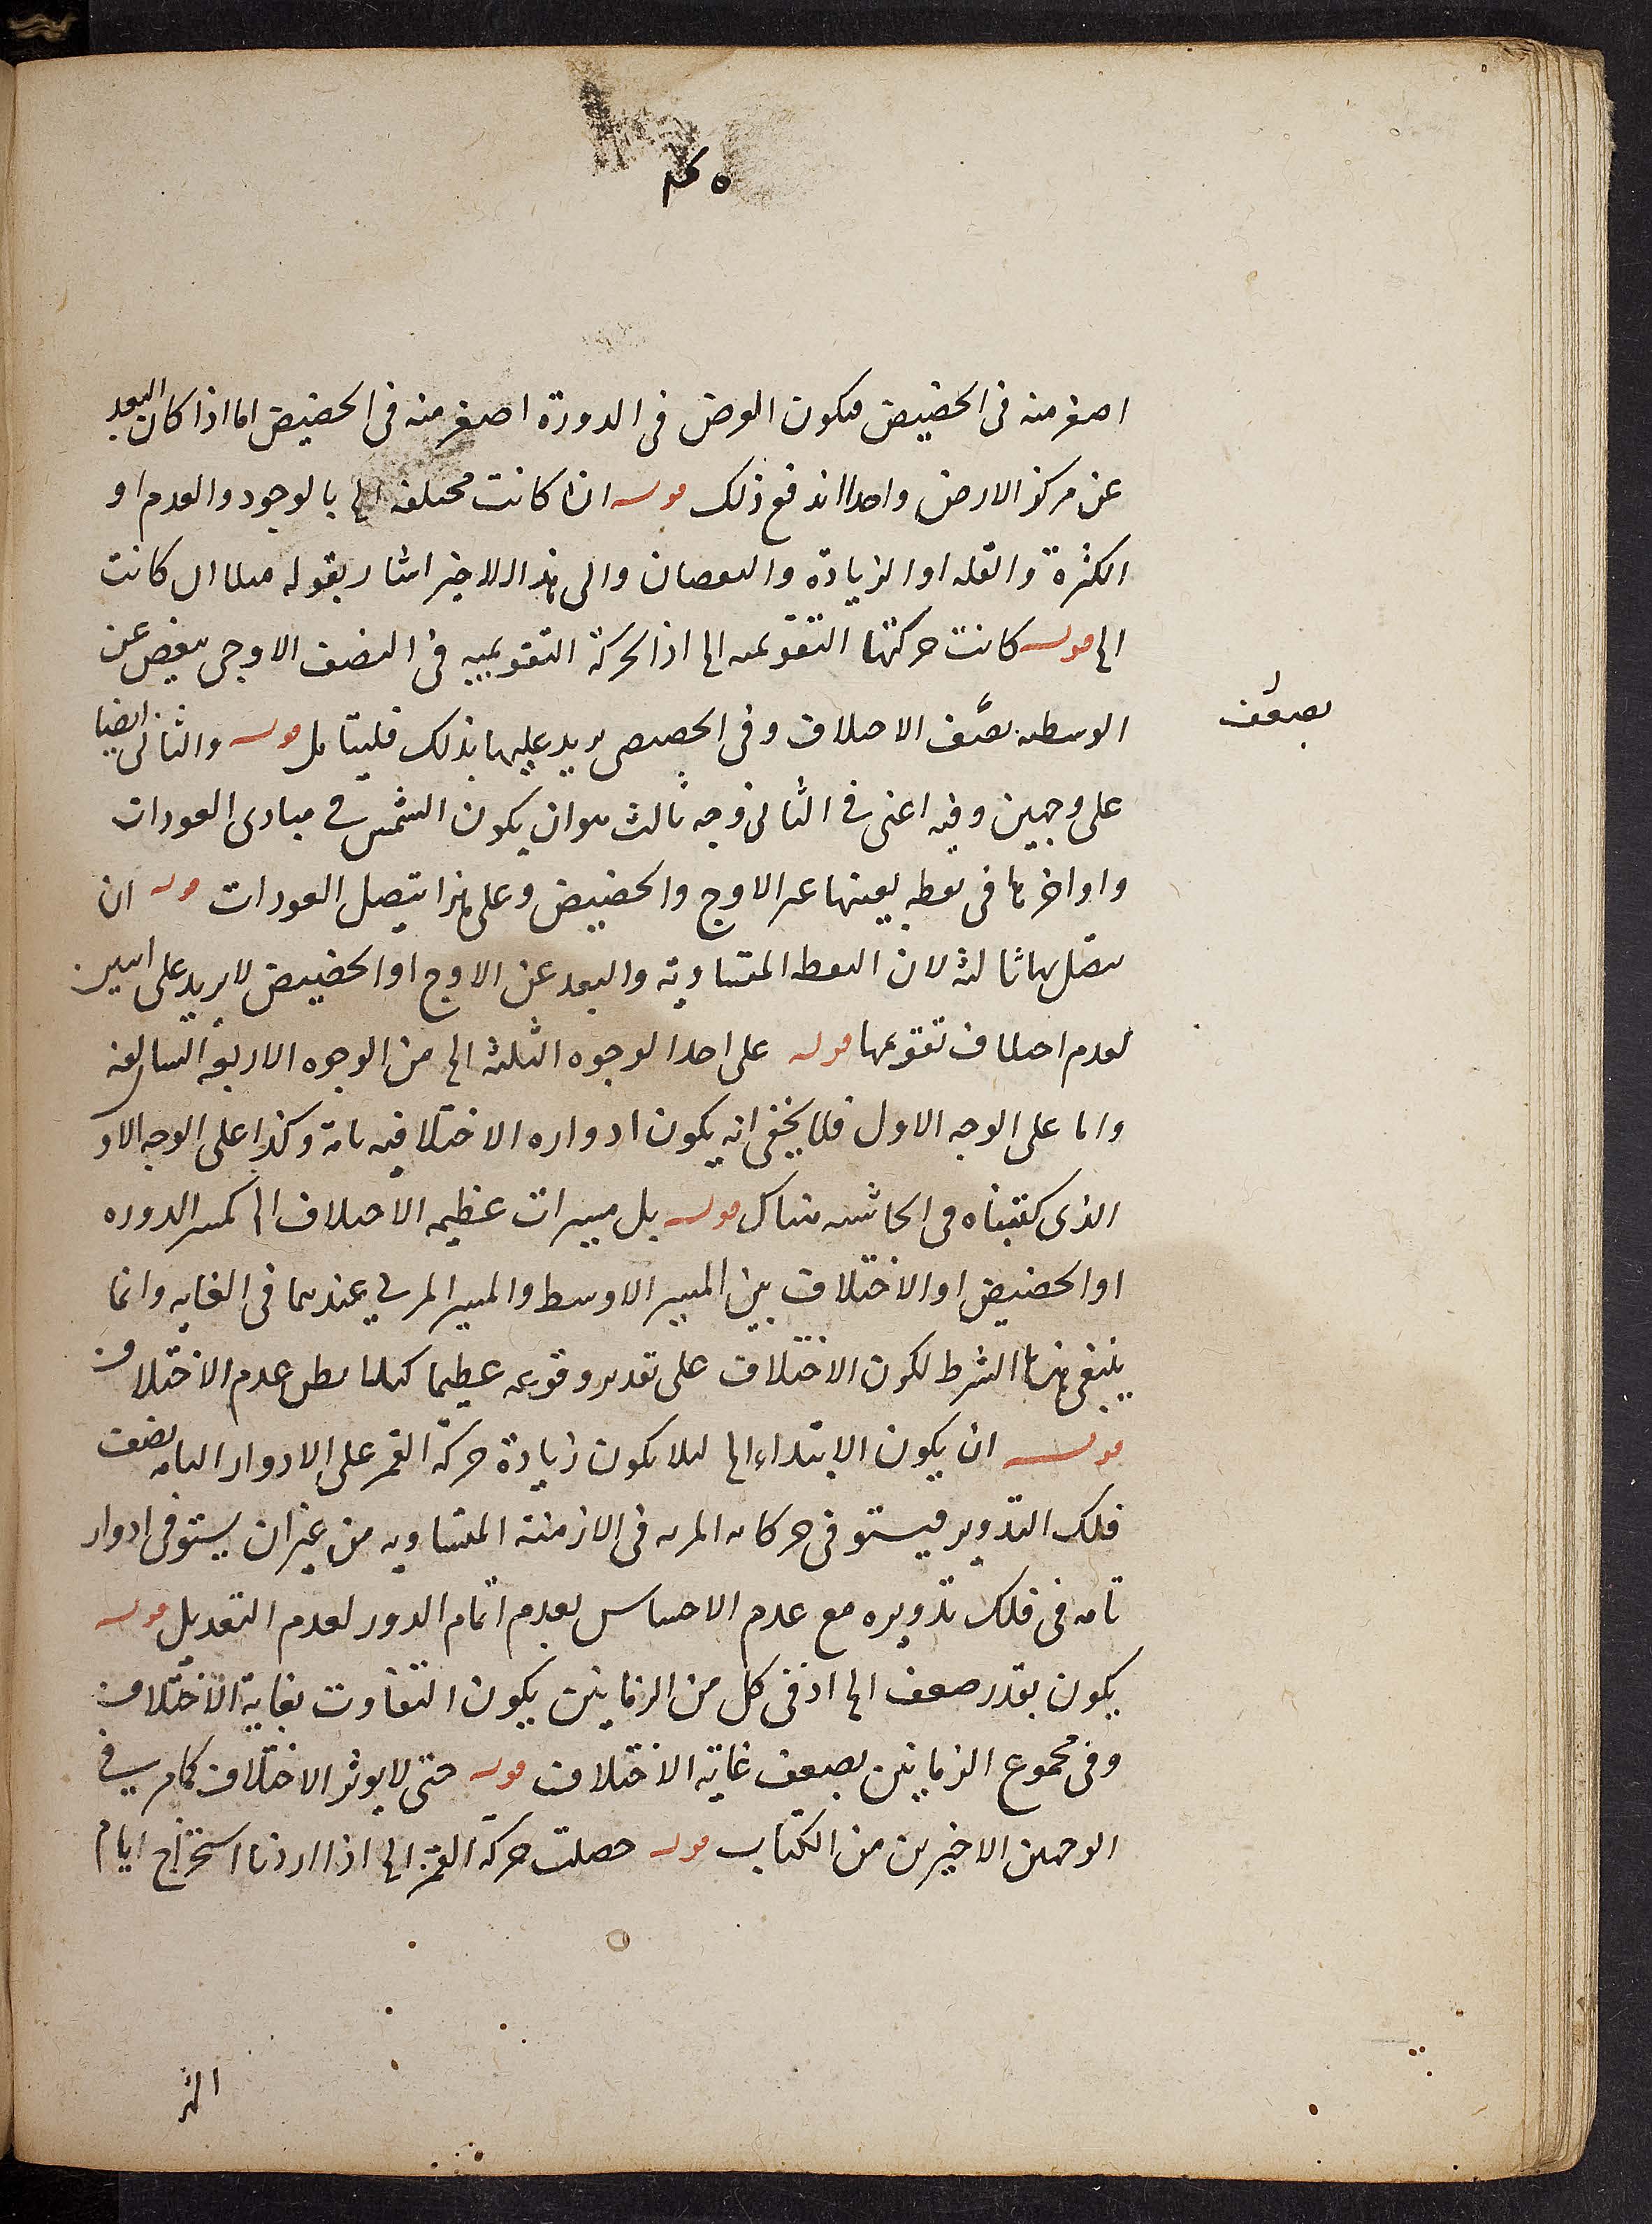 اصغر منه فى الحضيض فيكون العرض فى الدورة اصغر منه فى الحضيض اما اذا كان البعد
عن مركز الارض واحدا اندفع ذلك قوله ان كانت مختلفة الى بالوجود والعدم او
الكثرة والقلة او الزيادة والنقصان والى هذا الاخير اشار بقوله مثلا ان كانت
الى قوله كانت حركتها التقويمية الى اذ الحركة التقويمية فى النصف الاوجى ينقص عن
الوسطية بضعف الاختلاف وفى الحضيضى يزيد عليها بذلك فليتامل قوله والثانى ايضا
بضعف
على وجهين وفيه اعنى فى الثانى وجه ثالث هو ان يكون الشمس فى مبادى العودات
واواخرها فى نقطة بعينها غير الاوج والحضيض وعلى هذا يتصل العودات قوله ان
يتصل بها ثالثة لان النقطة المتساوية والبعد عن الاوج او الحضيض لا يزيد على اثنين
لعدم اختلاف تقويمها قوله على احد الوجوه الثلثة الى من الوجوه الاربعة السالفة
واما على الوجه الاول فلا يخفى انه يكون ادواره الاختلافية تامة وكذا على الوجه الاو
الذى كتبناه فى الحاشية هناك قوله بل مسيرات عظيمة الاختلاف الى كمسير الدورة
او الحضيض او الاختلاف بين المسير الاوسط والمسير المرئى عندهما فى الغاية وانما
ينبغى هذا الشرط لكون الاختلاف على تقدير وقوعه عظيما كيلا يظن عدم الاختلاف
قوله ان يكون الابتداء الى لئلا يكون زيادة حركة القمر على الادوار التامة نصف
فلك التدوير فيستوفى حركاته المرئية فى الازمنة المتساوية من غير ان يستوفى ادوار
تامة فى فلك تدويره مع عدم الاحساس بعدم اتمام الدور لعدم التعديل قوله
يكون بقدر ضعف الى اذ فى كل من الزمانين يكون التفاوت بغاية الاختلاف
وفى مجموع الزمانين بضعف غاية الاختلاف قوله حتى لا يوثر الاختلاف كما مر فى
الوجهين الاخيرين من الكتاب قوله حصلت حركة القمر الى اذا اردنا استخراج ايام